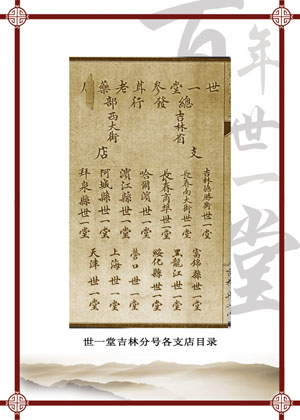 百年世一堂
世一堂參茸老藥
總發行部
吉林省西大街
支店
吉林德勝街世一堂
長春南大街世一堂
長春商埠世一堂
哈爾濱世一堂
濱江縣世一堂
阿城縣世一堂
拜泉縣世一堂
富錦縣世一堂
黑龍江世一堂
綏化縣世一堂
營口世一堂
上海世一堂
天津世一堂
世一堂吉林分号各支店目录